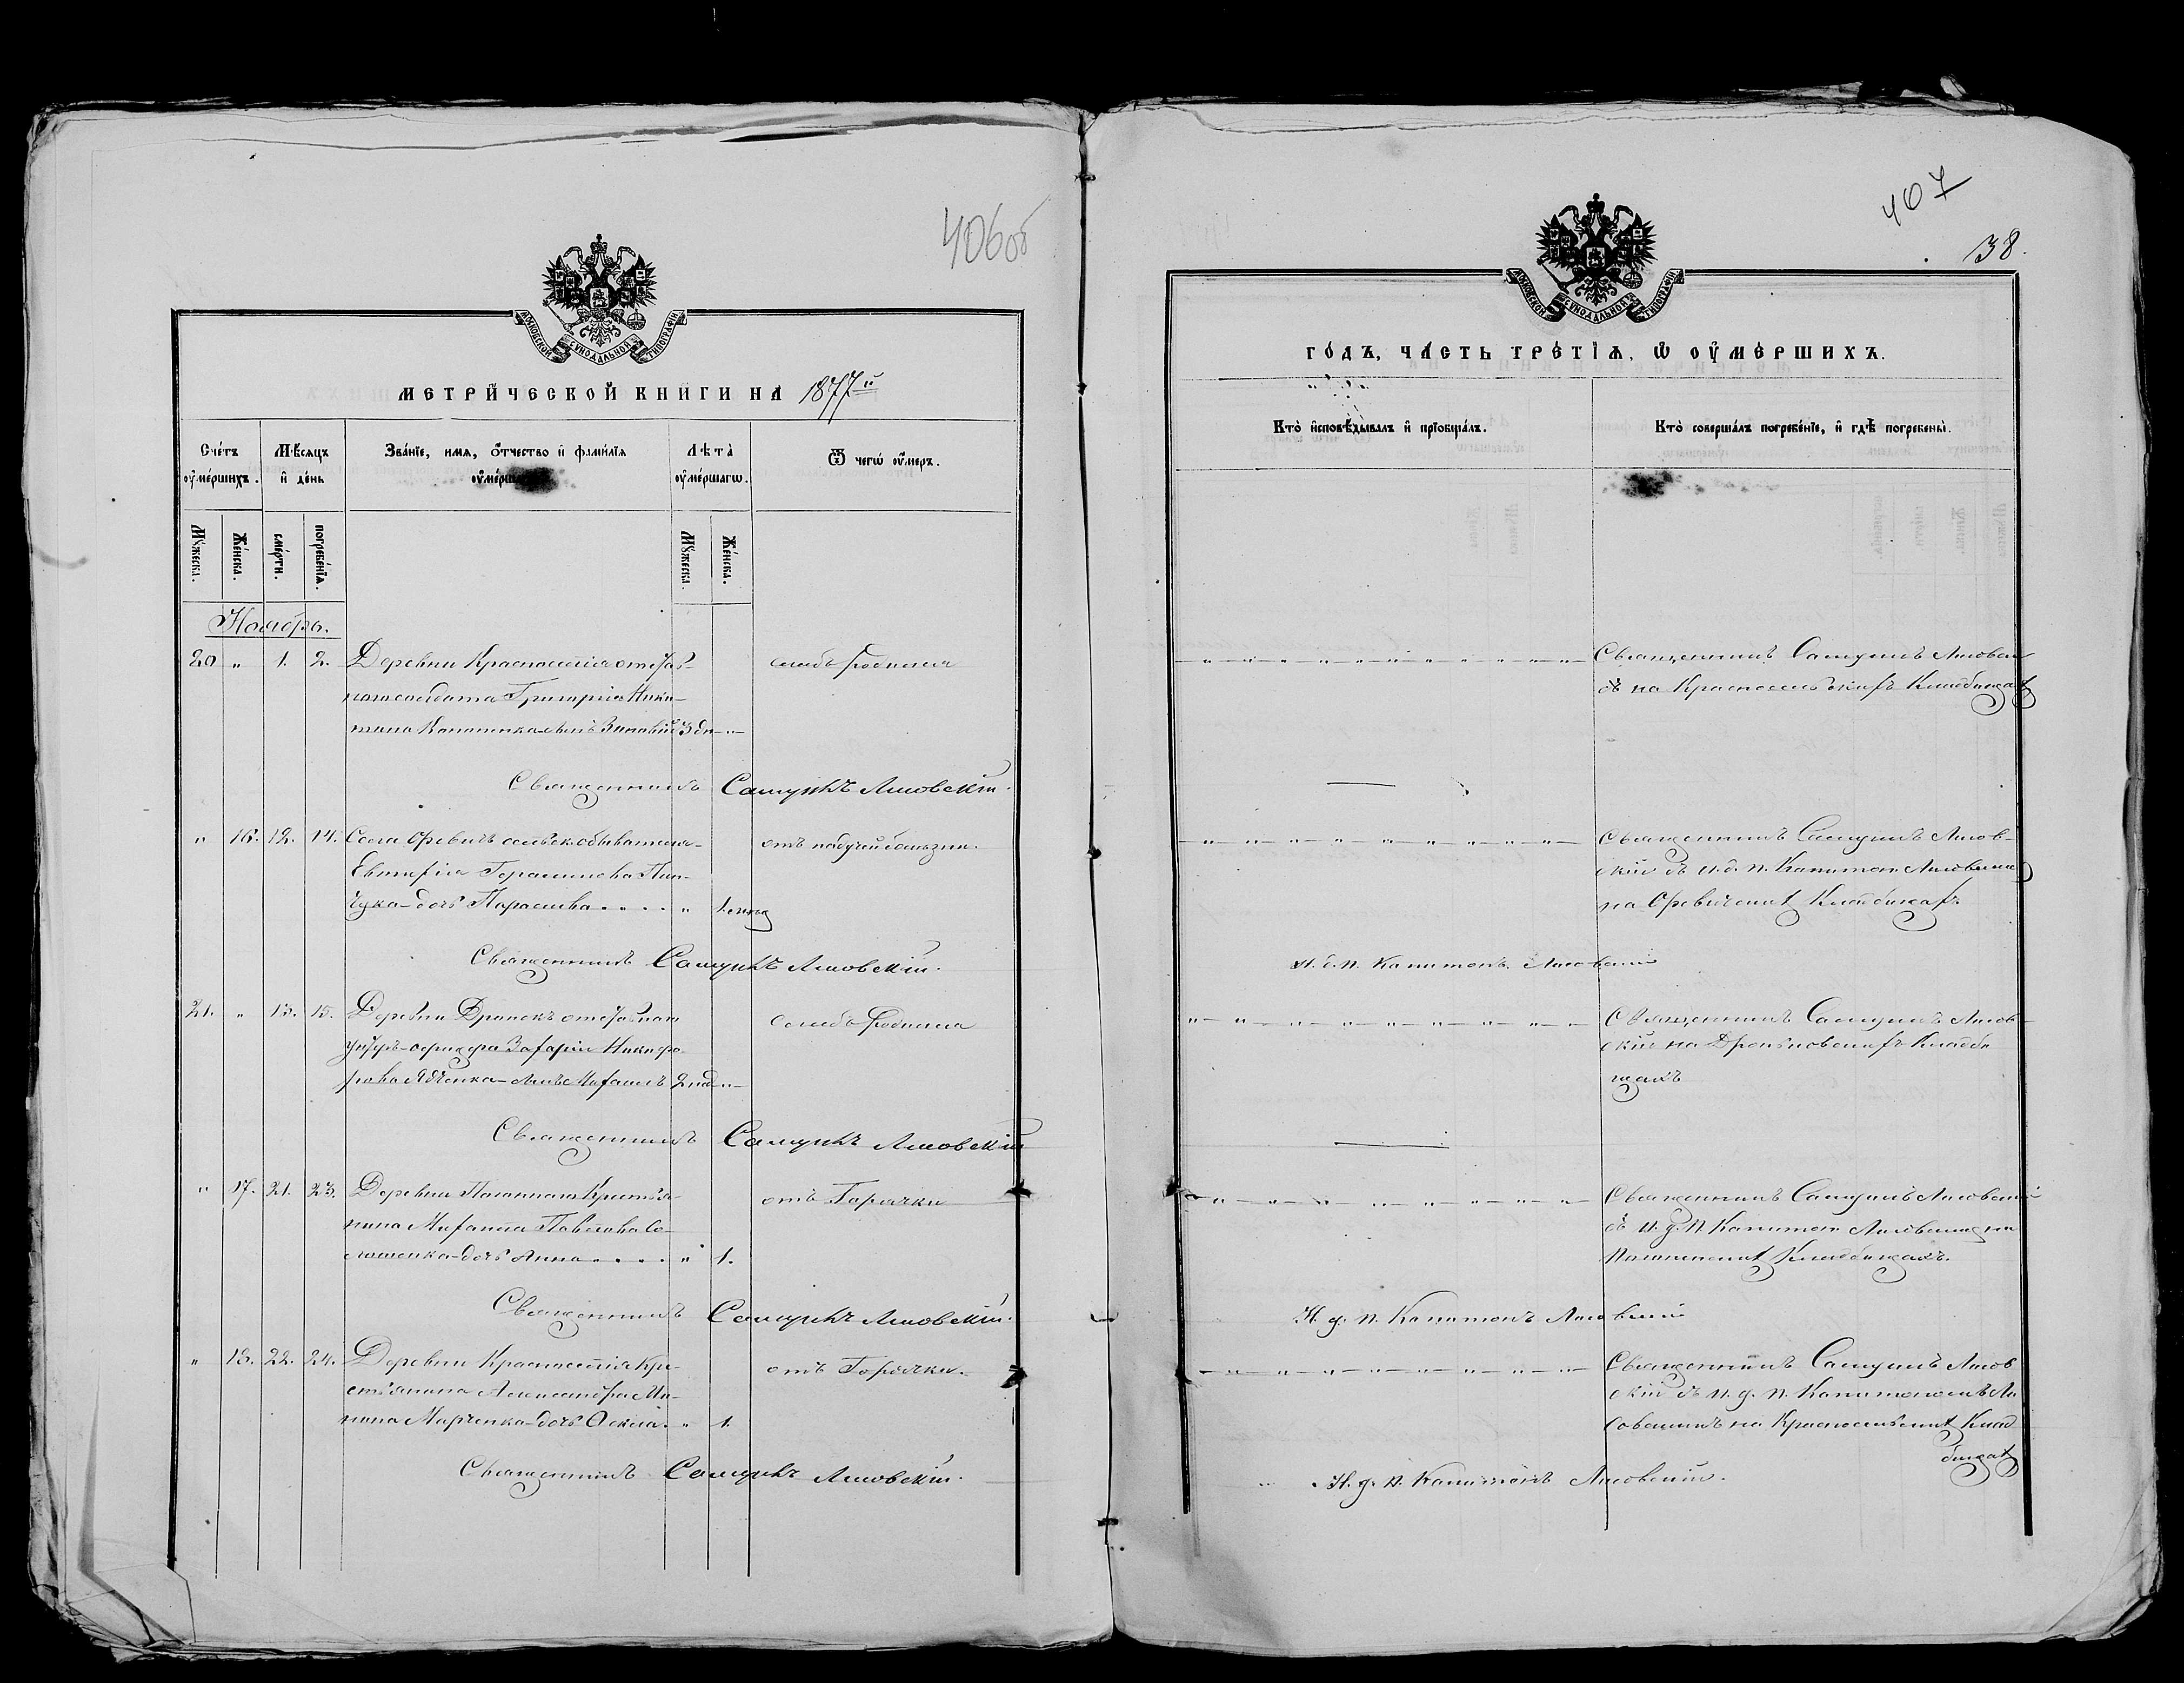 406об
МОСКОВСКОЙ СУНОДАЛЬНОЙ ТИПОГРАФІИ
МЕТРИ́ЧЕСКОЙ КНИ́ГИ НА 1877й
Сче́тъ ᲂу҆ме́ршихъ.
Мѣ́сяцъ и҆ де́нь
Зва́нїе, имя, ѻ҆́тчество и҆ фами́лїя
Лѣта̀ ᲂу҆ме́ршагѡ.
Ѿ чегѡ̀ ᲂу҆́меръ.
Мꙋ́жеска.
Же́нска.
сме́рти.
погребе́нїѧ.
Мꙋ́жеска.
Же́нска.
Ноября.
20 " 1. 2. Деревни Красноселія отстав-
наго солдата Григорія Ники-
тина сынъ Зиновій 3 дн "
слабъ родился
Священникъ Самуилъ Лисовскій.
" 16. 12. 14. Села Оревичъ сельск. обывателя
Евтифія Герасимова Пин-
чука дочь Параскева " 1. мѣсяц
отъ падучей болѣзни.
Священникъ Самуилъ Лисовскій.
21. " 13. 15. Деревни Дронекъ отставнаго
унтеръ-офицера Захарія Никифо-
рова сынъ Михаилъ 2 нед "
слабъ родился
Священникъ Самуилъ Лисовскій
" 17. 21. 23. Деревни Погоннаго Крестья-
нина Михаила Павлова
дочь Анна " 1.
отъ Горячки
Священникъ Самуилъ Лисовскій.
" 18. 22. 24. Деревни Красноселія Кре-
стьянина Александра Ми-
нина Марченка дочь Фекла " 1.
отъ Горячки.
Священникъ Самуилъ Лисовскій.
407
38.
МОСКОВСКОЙ СУНОДАЛЬНОЙ ТИПОГРАФІИ
ГО́ДЪ, ЧА́СТЬ ТРЕ́ТЇѦ, Ѡ҆ ОУ҆МЕ́РШИХЪ.
Кто̀ и҆сповѣ́дывалъ и҆ прїобща́лъ.
Кто̀ соверша́лъ погребе́нїе, и҆ гдѣ̀ погребены̀.
Священникъ Самуилъ Лисовскій
на Красносельскихъ Кладбищахъ
Священникъ Самуилъ Лисов-
скій съ и. д. п. Капитон. Лисовскимъ
на Оревичских Кладбищах.
И. д. п. Капитонъ Лисовскій
Священникъ Самуилъ Лисов-
скій на Дроньковскихъ Кладби
щахъ
Священникъ Самуилъ Лисовскій
съ и. д. п. Капитон Лисовскимъ на
Погонянских Кладбищахъ.
И. д. п. Капитонъ Лисовскій
Священникъ Самуилъ Лисов
скій съ и. д. п. Капитономъ Ли
совскимъ на Красносельских Клад
бищах
И. д. п. Капитонъ Лисовскій.